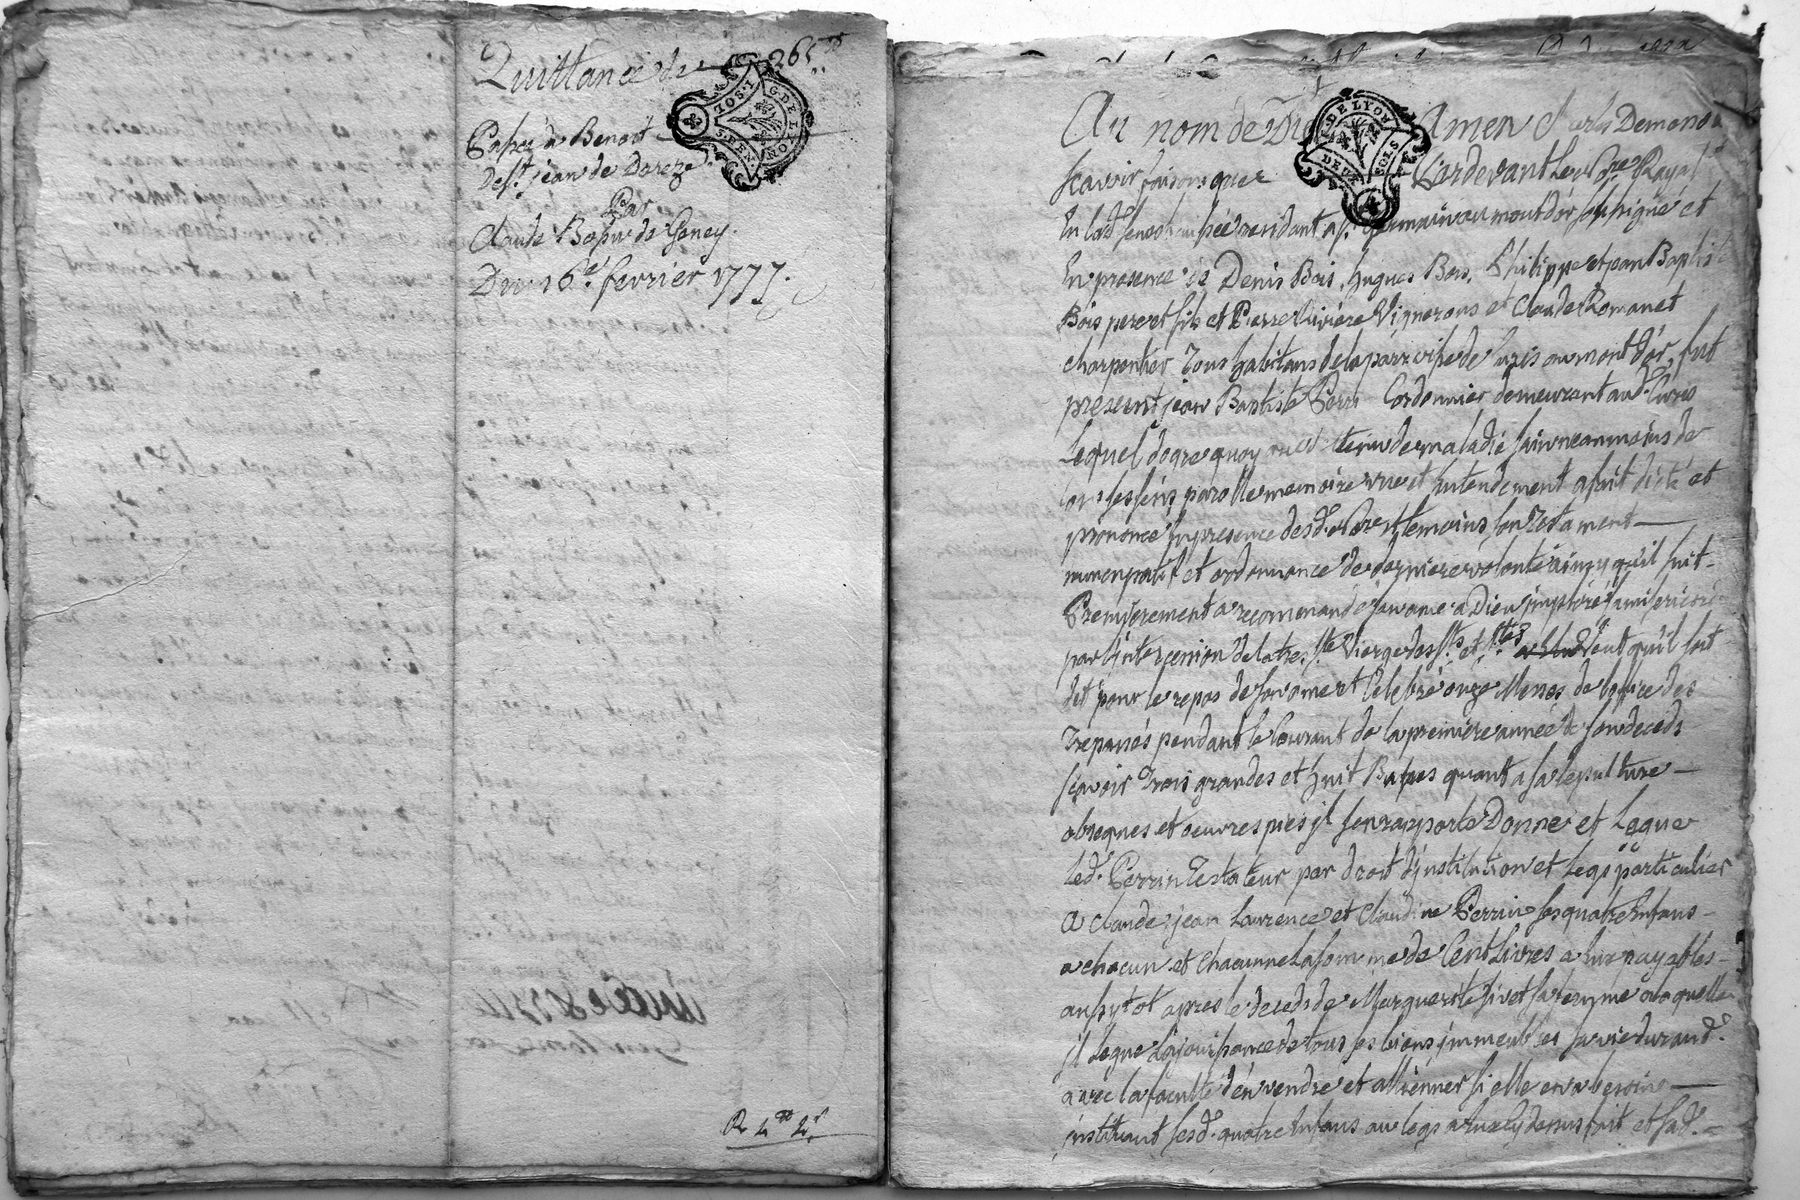 Quittance de 265ᵗᵗ
passée à Benoit
de Sᵗ jean de Dorez
Par
Claude Bapᵗᵉ de Geney.
Du 16ᵉ fevrier 1777.
G. DE LYON
I. SOL
SIX. DEN.
R 4ᵗᵗ 2ˢ
G. DE LYON
DEUX SOLS
Au nom de Dieu Amen
scavoir faisons que Pardevant Le Nʳᵉ Royal
En lad. senechaussée residant a Sᵗ germain au mont d'or soussigné et
En presence de Denis Bois, hugues Bois, Philippe et jean Baptiste
Bois pere et fils et Pierre Riviere Vignerons et Claude Romanet
charpentier Tous habitans de la parroisse de Curis au mont d'or, fut
present jean Baptiste Perrin Cordonnier demeurant aud. Curis
Lequel de gré quoy que detenu de maladie sain neanmoins de
tous ses sens parolle memoire vue et Entendement a fait dicté et
prononcé En presence desd. Nʳᵉ et temoins son Testament
nuncupatif et ordonnance de derniere volonté ainsy qu'il suit
Premierement a recommandé son ame a Dieu imploré sa misericorde
par l'intercession de la tres Sᵗᵉ Vierge des Sᵗˢ et Sᵗᵉˢ Veut qu'il soit
dit pour le repos de son ame et Celebré onze Messes de l'office des
Trepassés pendant le Courant de la premiere année de son deceds
scavoir Trois grandes et huit Basses quant a sa sepulture
obseques et oeuvres pies il s'en rapporte Donne et Legue
led. Perrin Testateur par droit d'institution et legs particulier
a Claude jean Laurence et Claudine Perrin ses quatre Enfans
a chacun et chacunne La somme de Cent Livres a Eux payables
aussytot apres le deceds de Marguerite sivet sa femme a laquelle
il legue la jouissance de tous ses biens immeubles sa vie durand.
avec la faculté d'en vendre et alliener si elle en a besoin
instituant sesd. quatre Enfans au legs a Eux cy dessus fait et sad.